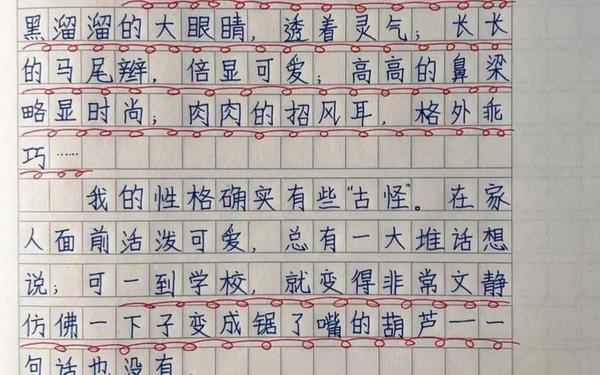 黑溜溜的大眼睛，透着灵气；长长
的马尾辫，倍显可爱；高高的鼻梁
略显时尚；肉肉的招风耳，格外乖
巧……
我的性格确实有些“古怪”。在家
人面前活泼可爱，总有一大堆话想
说；可一到学校，就变得非常文静
仿佛一下子变成锯了嘴的葫芦——一
句话也没有.